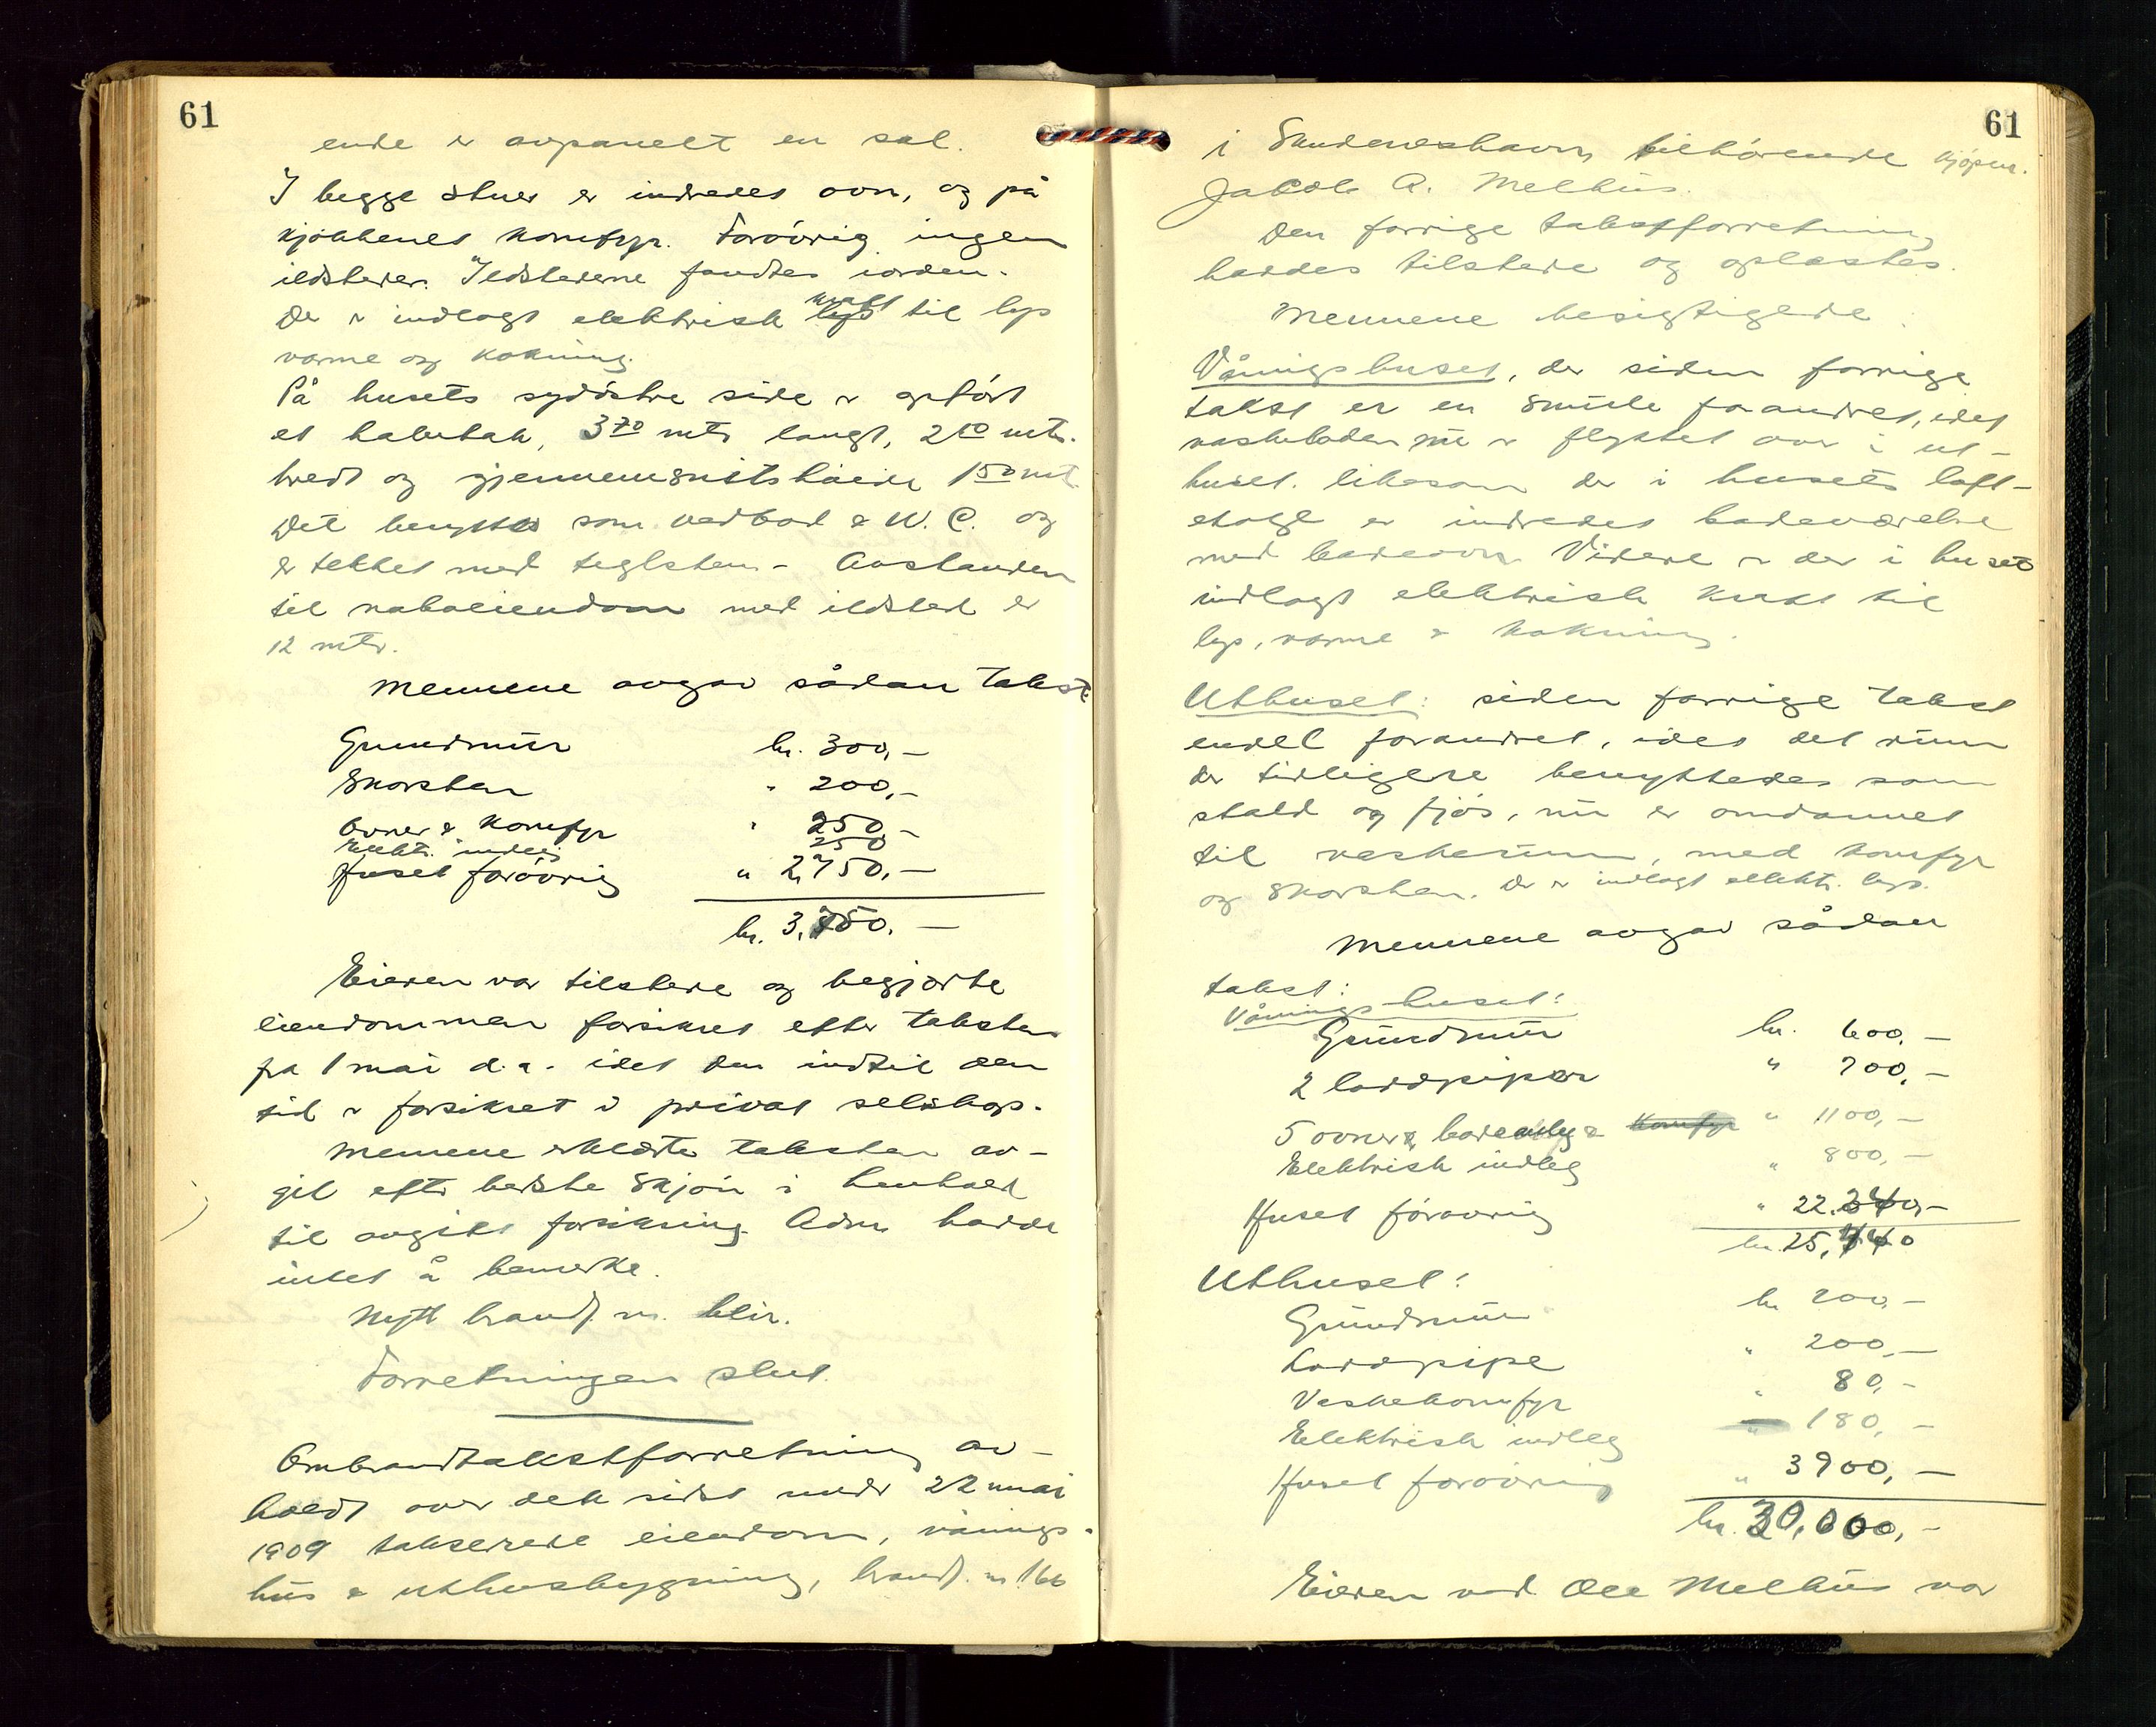 61
ende er avpanelt en sal.
I begge stuer er indredet ovn, og på
kjøkkenet komfyr. Forøvrig ingen
ildsteder. Ildstederne fandtes iorden.
Der er indlagt elektrisk kraft til lys
varme og kokning.
På husets sydøstre side er opført
et halvtak, 3 70 mtr langt, 2 10 mtr.
bredt og gjennemsnitshøide 1 50 mt.
Det benyttes som vedbod & W. C. og
er tekket med teglsten - Avstanden
til naboeiendom med ildsted er
12 mtr.
Mennene avgav sådan takst:
Grundmur kr. 300,-
Skorsten " 200,-
Ovner & komfyr " 250,-
Elektr. indleg 250
Huset forøvrig " 2,750,-
kr. 3,750.-
Eieren var tilstede og begjærte
eiendommen forsikret efter taksten
fra 1 mai d.a. idet den indtil den
tid er forsikret i privat selskap.
Mennene erklærte taksten av-
git efter bedste skjøn i henhold
til avgitt forsikring. Adm. hadde
intet å bemerke.
Nytt brandf. nr. blir.
Forretningen slut.
Ombrandtakstforretning av-
holdt over den sidst under 22 mai
1909 takserede eiendom, vånings-
hus & uthusbygning, brandf. nr. 166
61
i Skudeneshavn tilhørende kjøpm.
Jakob A. Melhus.
Den forrige takstforretning
haddes tilstede og oplæstes.
Mennene besigtigede.
Våningshuset, der siden forrige
takst er en smule forandret, idet
vaskeboden nu er flyttet over i ut-
huset. likesom der i husets loft-
etage er indredet badeværelse
med badeovn. Videre er der i huset
indlagt elektrisk kraft til
lys, varme & kokning.
Uthuset: siden forrige takst
endel forandret, idet det rum
der tidligere benyttedes som
stald og fjøs, nu er omdannet
til vaskerum, med komfyr
og skorsten. Der er indlagt elektr. lys.
Mennene avgav sådan
takst:
Våningshuset:
Grundmur kr. 600,-
2 laddpiper " 700,-
5 ovner & badeanleg & komfyr " 1100,-
Elektrisk indleg " 800,-
Huset forøvrig " 22.240,-
kr. 25,440
Uthuset:
Grundmur kr 200,-
Laddpipe " 200,-
Vaskekomfyr " 80,-
Elektrisk indleg " 180,-
Huset forøvrig " 3900,-
kr. 30,000,-
Eieren ved Ole Melhus var